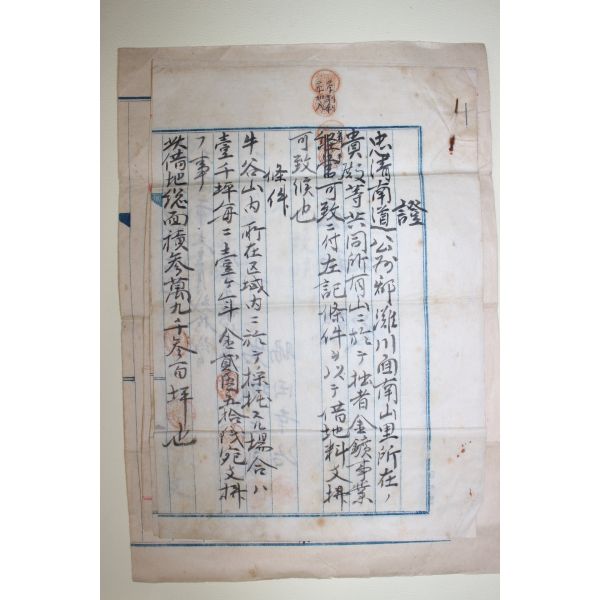 證
忠清南道公州郡灘川面南山里所在ノ
貴殿等共同所有山ニ於テ拙者金鑛事業
可致ニ付左記條件ヲ以テ借地料支拂
可致候也
條件
牛谷山内所在区域内ニ於テ採掘スル場合ハ
壹千坪毎ニ壹ヶ年金貳圓五拾錢宛支拂
ノ事
此借地總面積参萬九千参百坪也